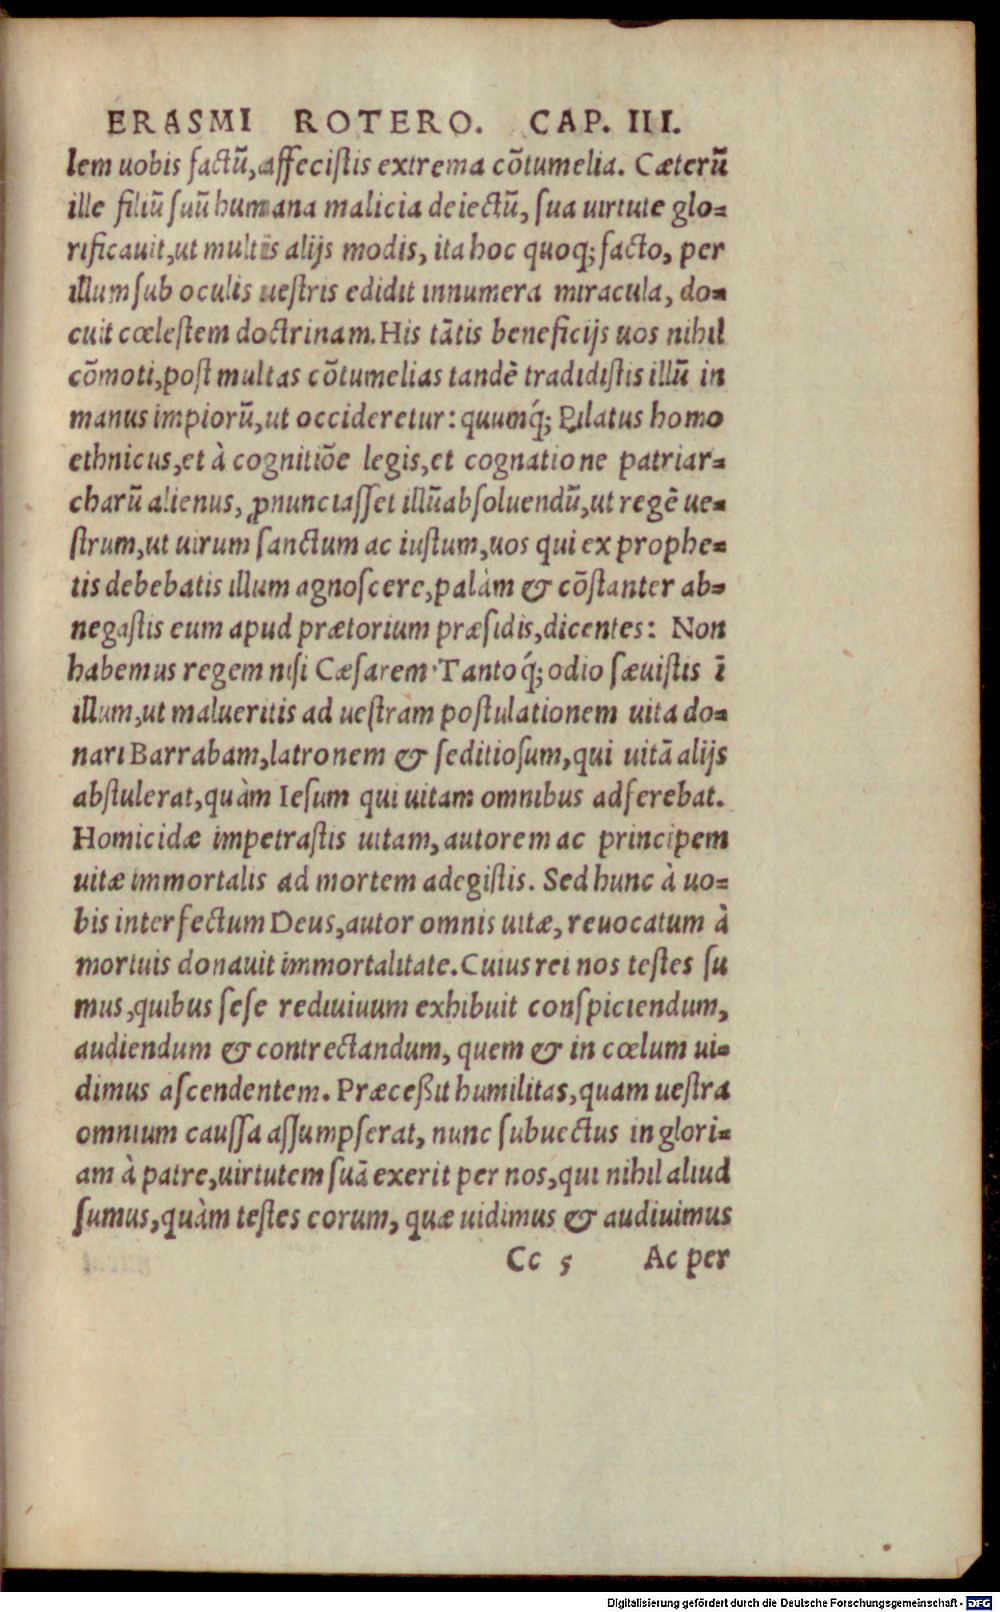 ERASMI ROTERO. CAP. III.
lem uobis factũ, affeciſtis extrema cõtumelia. Cæterũ
ille filiũ ſuũ humana malicia deiectũ, ſua uirtute glo-
rificauit, ut multis alijs modis, ita hoc quoq; facto, per
illum ſub oculis ueſtris edidit innumera miracula, do-
cuit cœleſtem doctrinam. His tãtis beneficijs uos nihil
cõmoti, poſt multas cõtumelias tandẽ tradidiſtis illũ in
manus impiorũ, ut occideretur: quumq́; Pilatus homo
ethnicus, et à cognitiõe legis, et cognatione patriar-
charũ alienus, ꝓnunciaſſet illũ abſoluendũ, ut regẽ ue-
ſtrum, ut uirum ſanctum ac iuſtum, uos qui ex prophe-
tis debebatis illum agnoſcere, palàm & cõſtanter ab-
negaſtis eum apud prætorium præſidis, dicentes: Non
habemus regem niſi Cæſarem. Tantoq́; odio ſæuiſtis ĩ
illum, ut malueritis ad ueſtram poſtulationem uita do-
nari Barrabam, latronem & ſeditioſum, qui uitã alijs
abſtulerat, quàm Ieſum qui uitam omnibus adferebat.
Homicidæ impetraſtis uitam, autorem ac principem
uitæ immortalis ad mortem adegiſtis. Sed hunc à uo-
bis interfectum Deus, autor omnis uitæ, reuocatum à
mortuis donauit immortalitate. Cuius rei nos teſtes ſu
mus, quibus ſeſe rediuiuum exhibuit conſpiciendum,
audiendum & contrectandum, quem & in cœlum ui-
dimus aſcendentem. Præceßit humilitas, quam ueſtra
omnium cauſſa aſſumpſerat, nunc ſubuectus in glori-
am à patre, uirtutem ſuã exerit per nos, qui nihil aliud
ſumus, quàm teſtes eorum, quæ uidimus & audiuimus
Cc 5 Ac per
Digitalisierung gefördert durch die Deutsche Forschungsgemeinschaft - DFG